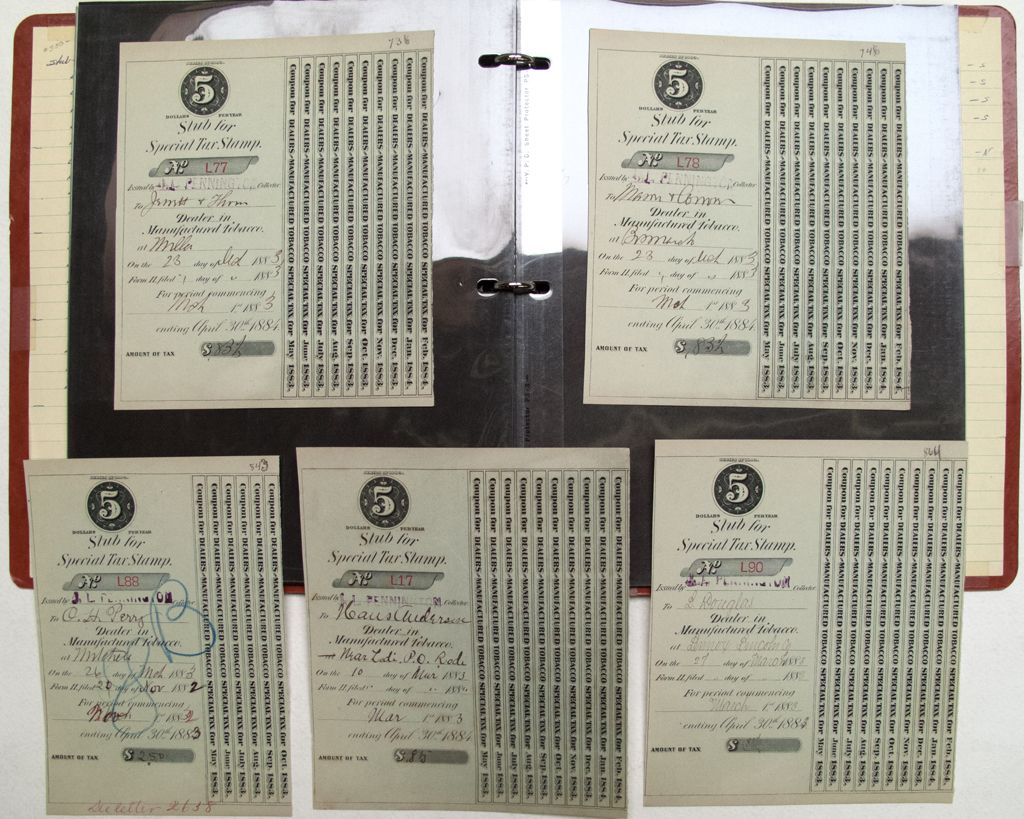 738
5
DOLLARS PER YEAR
Stub for
Special Tax Stamp.
No L77
Issued by J. L. PENNINGTON Collector
To
Dealer in
Manufactured Tobacco.
at Miller
On the 23 day of Mch 1883
Form 11, filed day of 1883
For period commencing
Mch 1st 1883
ending April 30th 1884
AMOUNT OF TAX $ .83½
Coupon for DEALERS-MANUFACTURED TOBACCO SPECIAL TAX for May 1883.
Coupon for DEALERS-MANUFACTURED TOBACCO SPECIAL TAX for June 1883.
Coupon for DEALERS-MANUFACTURED TOBACCO SPECIAL TAX for July 1883.
Coupon for DEALERS-MANUFACTURED TOBACCO SPECIAL TAX for Aug. 1883.
Coupon for DEALERS-MANUFACTURED TOBACCO SPECIAL TAX for Sep. 1883.
Coupon for DEALERS-MANUFACTURED TOBACCO SPECIAL TAX for Oct. 1883.
Coupon for DEALERS-MANUFACTURED TOBACCO SPECIAL TAX for Nov. 1883.
Coupon for DEALERS-MANUFACTURED TOBACCO SPECIAL TAX for Dec. 1883.
Coupon for DEALERS-MANUFACTURED TOBACCO SPECIAL TAX for Jan. 1884.
Coupon for DEALERS-MANUFACTURED TOBACCO SPECIAL TAX for Feb. 1884.
748
5
DOLLARS PER YEAR
Stub for
Special Tax Stamp.
No L78
Issued by J. L. PENNINGTON Collector
To
Dealer in
Manufactured Tobacco.
at Bismarck
On the 23 day of Mch 1883
Form 11, filed day of 1883
For period commencing
Mch 1st 1883
ending April 30th 1884
AMOUNT OF TAX $ .83½
Coupon for DEALERS-MANUFACTURED TOBACCO SPECIAL TAX for May 1883.
Coupon for DEALERS-MANUFACTURED TOBACCO SPECIAL TAX for June 1883.
Coupon for DEALERS-MANUFACTURED TOBACCO SPECIAL TAX for July 1883.
Coupon for DEALERS-MANUFACTURED TOBACCO SPECIAL TAX for Aug. 1883.
Coupon for DEALERS-MANUFACTURED TOBACCO SPECIAL TAX for Sep. 1883.
Coupon for DEALERS-MANUFACTURED TOBACCO SPECIAL TAX for Oct. 1883.
Coupon for DEALERS-MANUFACTURED TOBACCO SPECIAL TAX for Nov. 1883.
Coupon for DEALERS-MANUFACTURED TOBACCO SPECIAL TAX for Dec. 1883.
Coupon for DEALERS-MANUFACTURED TOBACCO SPECIAL TAX for Jan. 1884.
Coupon for DEALERS-MANUFACTURED TOBACCO SPECIAL TAX for Feb. 1884.
843
5
DOLLARS PER YEAR
Stub for
Special Tax Stamp.
No L88
Issued by J. L. PENNINGTON Collector
To O. A. Perry
Dealer in
Manufactured Tobacco.
at Mitchell
On the 26 day of Mch 1883
Form 11, filed 20 day of Nov 1882
For period commencing
Nov 1st 1882
ending April 30th 1883
AMOUNT OF TAX $ 2.50
Coupon for DEALERS-MANUFACTURED TOBACCO SPECIAL TAX for May 1883.
Coupon for DEALERS-MANUFACTURED TOBACCO SPECIAL TAX for June 1883.
Coupon for DEALERS-MANUFACTURED TOBACCO SPECIAL TAX for July 1883.
Coupon for DEALERS-MANUFACTURED TOBACCO SPECIAL TAX for Aug. 1883.
Coupon for DEALERS-MANUFACTURED TOBACCO SPECIAL TAX for Sep. 1883.
Coupon for DEALERS-MANUFACTURED TOBACCO SPECIAL TAX for Oct. 1883.
letter 2638
5
DOLLARS PER YEAR
Stub for
Special Tax Stamp.
No L17
Issued by J. L. PENNINGTON Collector
To Hans Anderson
Dealer in
Manufactured Tobacco.
at Near P.O.
On the 10 day of Mar 1883
Form 11, filed day of 188
For period commencing
Mar 1st 1883
ending April 30th 1884
AMOUNT OF TAX $ .85
Coupon for DEALERS-MANUFACTURED TOBACCO SPECIAL TAX for May 1883.
Coupon for DEALERS-MANUFACTURED TOBACCO SPECIAL TAX for June 1883.
Coupon for DEALERS-MANUFACTURED TOBACCO SPECIAL TAX for July 1883.
Coupon for DEALERS-MANUFACTURED TOBACCO SPECIAL TAX for Aug. 1883.
Coupon for DEALERS-MANUFACTURED TOBACCO SPECIAL TAX for Sep. 1883.
Coupon for DEALERS-MANUFACTURED TOBACCO SPECIAL TAX for Oct. 1883.
Coupon for DEALERS-MANUFACTURED TOBACCO SPECIAL TAX for Nov. 1883.
Coupon for DEALERS-MANUFACTURED TOBACCO SPECIAL TAX for Dec. 1883.
Coupon for DEALERS-MANUFACTURED TOBACCO SPECIAL TAX for Jan. 1884.
Coupon for DEALERS-MANUFACTURED TOBACCO SPECIAL TAX for Feb. 1884.
864
5
DOLLARS PER YEAR
Stub for
Special Tax Stamp.
No L90
Issued by J. L. PENNINGTON Collector
To Douglas
Dealer in
Manufactured Tobacco.
at
On the 27 day of March 1883
Form 11, filed day of 188
For period commencing
March 1st 1883
ending April 30th 1884
AMOUNT OF TAX $
Coupon for DEALERS-MANUFACTURED TOBACCO SPECIAL TAX for May 1883.
Coupon for DEALERS-MANUFACTURED TOBACCO SPECIAL TAX for June 1883.
Coupon for DEALERS-MANUFACTURED TOBACCO SPECIAL TAX for July 1883.
Coupon for DEALERS-MANUFACTURED TOBACCO SPECIAL TAX for Aug. 1883.
Coupon for DEALERS-MANUFACTURED TOBACCO SPECIAL TAX for Sep. 1883.
Coupon for DEALERS-MANUFACTURED TOBACCO SPECIAL TAX for Oct. 1883.
Coupon for DEALERS-MANUFACTURED TOBACCO SPECIAL TAX for Nov. 1883.
Coupon for DEALERS-MANUFACTURED TOBACCO SPECIAL TAX for Dec. 1883.
Coupon for DEALERS-MANUFACTURED TOBACCO SPECIAL TAX for Jan. 1884.
Coupon for DEALERS-MANUFACTURED TOBACCO SPECIAL TAX for Feb. 1884.